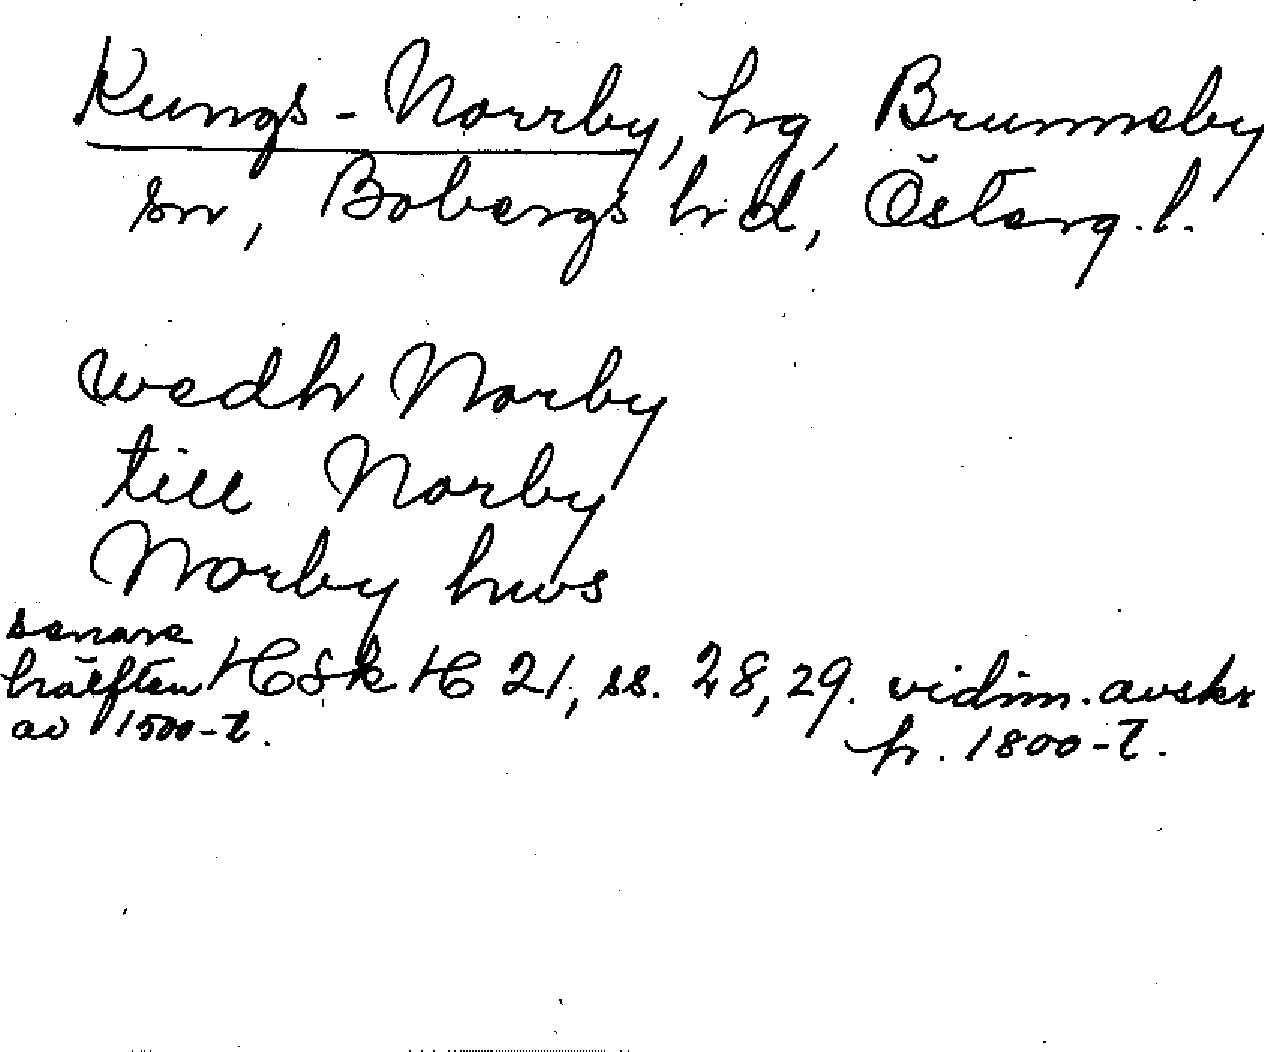 Kungs-Norrby, hg, Brunneby
sn, Bobergs hd, Österg.l.
wedh Norby
till Norby
Norby hws
senare
hälften HSk H 21, ss. 28, 29. vidim. avskr
av 1500-t. fr. 1800-t.